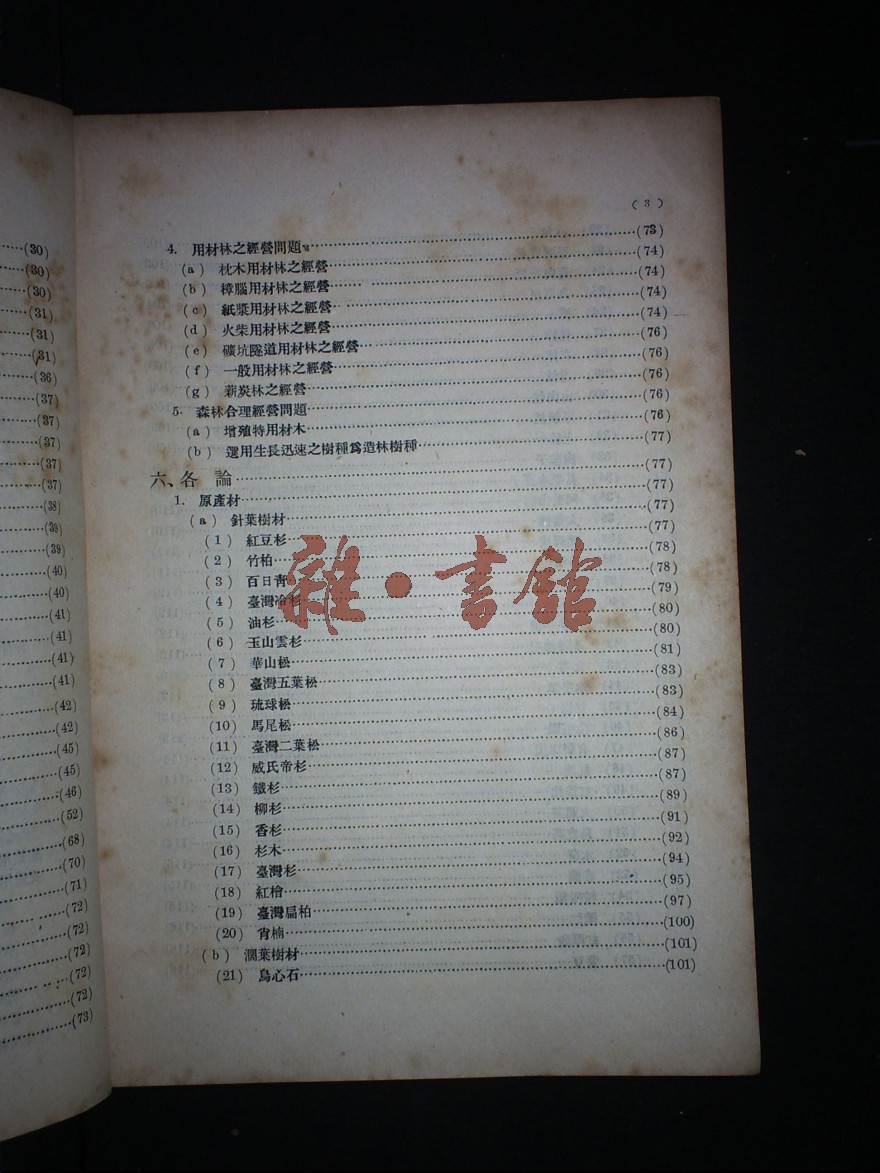 (30)
(30)
(30)
(31)
(31)
(31)
(36)
(37)
(37)
(37)
(37)
(37)
(38)
(39)
(39)
(40)
(40)
(41)
(41)
(41)
(41)
(42)
(42)
(45)
(45)
(46)
(52)
(68)
(70)
(71)
(72)
(72)
(72)
(72)
(72)
(73)
( 3 )
4. 用材林之經營問題……(73)
(a) 枕木用材林之經營……(74)
(b) 樟腦用材林之經營……(74)
(c) 紙漿用材林之經營……(74)
(d) 火柴用材林之經營……(74)
(e) 礦坑隧道用材林之經營……(76)
(f) 一般用材林之經營……(76)
(g) 薪炭林之經營……(76)
5. 森林合理經營問題……(76)
(a) 增殖特用材木……(76)
(b) 選用生長迅速之樹種爲造林樹種……(77)
六、各 論……(77)
1. 原產材……(77)
(a) 針葉樹材……(77)
(1) 紅豆杉……(77)
(2) 竹柏……(78)
(3) 百日靑……(78)
(4) 臺灣冷杉……(79)
(5) 油杉……(80)
(6) 玉山雲杉……(80)
(7) 華山松……(81)
(8) 臺灣五葉松……(83)
(9) 琉球松……(83)
(10) 馬尾松……(84)
(11) 臺灣二葉松……(86)
(12) 威氏帝杉……(87)
(13) 鐵杉……(87)
(14) 柳杉……(89)
(15) 香杉……(91)
(16) 杉木……(92)
(17) 臺灣杉……(94)
(18) 紅檜……(95)
(19) 臺灣扁柏……(97)
(20) 肖楠……(100)
(b) 濶葉樹材……(101)
(21) 烏心石……(101)
雜·書館